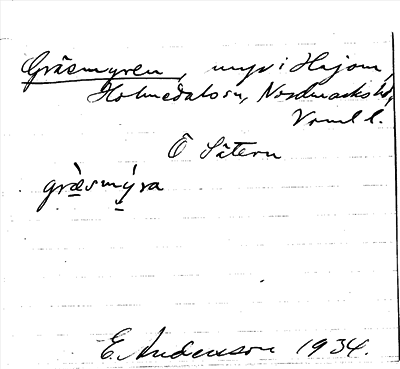 Gräsmyren, myr i Hajom,
Holmedals sn, Nordmarks hd,
Vrml l.
Ö Sätern
græ̀smýra
E. Andersson 1934.